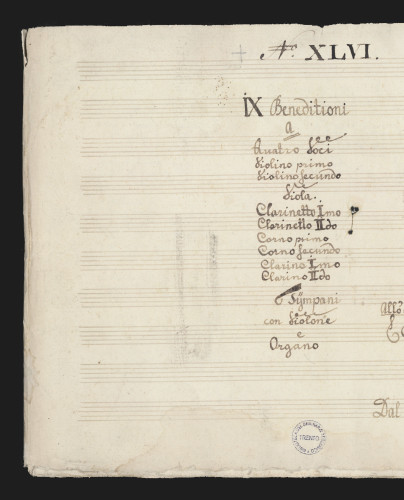 No. XLVI.
IX Beneditioni
a
Quatro Voci
Violino primo
Violino secundo
Viola.
Clarinetto I.mo
Clarinetto II.do
Corno primo
Corno secundo
Clarino I.mo
Clarino II.do
Tÿmpani
con Violone
e
Organo
Allo
Dal
TRENTO